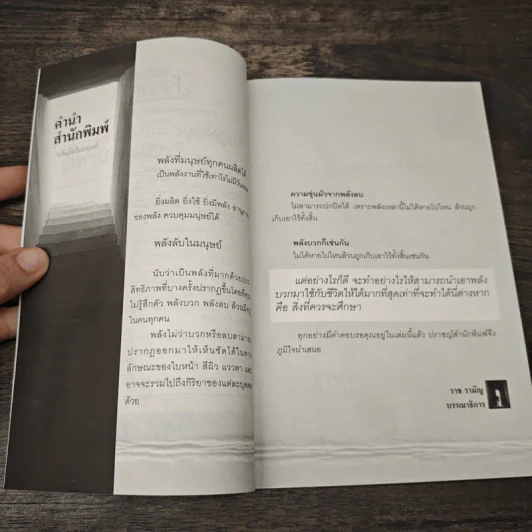 คำนำ
สำนักพิมพ์
พลังลับในมนุษย์
พลังที่มนุษย์ทุกคนผลิตได้
เป็นพลังงานที่ใช้เท่าไรไม่มีวันหมด
ยิ่งผลิต ยิ่งใช้ ยิ่งมีพลัง
ของพลัง ควบคุมมนุษย์ได้
พลังลับในมนุษย์
นับว่าเป็นพลังที่มากด้วยประ
สิทธิภาพที่บางครั้งปรากฏขึ้นโดยที่คุณ
ไม่รู้สึกตัว พลังบวก พลังลบ ล้วนมีอยู่
ในคนทุกคน
พลังไม่ว่าบวกหรือลบสามารถ
ปรากฏออกมาให้เห็นชัดได้ในทาง
ลักษณะของใบหน้า สีผิว แววตา และ
อาจจะรวมไปถึงกิริยาของแต่ละบุคคล
ด้วย
ความขุ่นมัวจากพลังลบ
ไม่สามารถปกปิดได้ เพราะพลังเหล่านี้ไม่ได้หายไปไหน ล้วนถูก
เก็บเอาไว้ทั้งสิ้น
พลังบวกก็เช่นกัน
ไม่ได้หายไปไหนล้วนถูกเก็บเอาไว้ทั้งสิ้นเช่นกัน
แต่อย่างไรก็ดี จะทำอย่างไรให้สามารถนำเอาพลัง
บวกมาใช้กับชีวิตให้ได้มากที่สุดเท่าที่จะทำได้นี่ต่างหาก
คือ สิ่งที่ควรจะศึกษา
ทุกอย่างมีคำตอบรอคุณอยู่ในเล่มนี้แล้ว ปราชญ์สำนักพิมพ์จึง
ภูมิใจนำเสนอ
ราช รามัญ
บรรณาธิการ